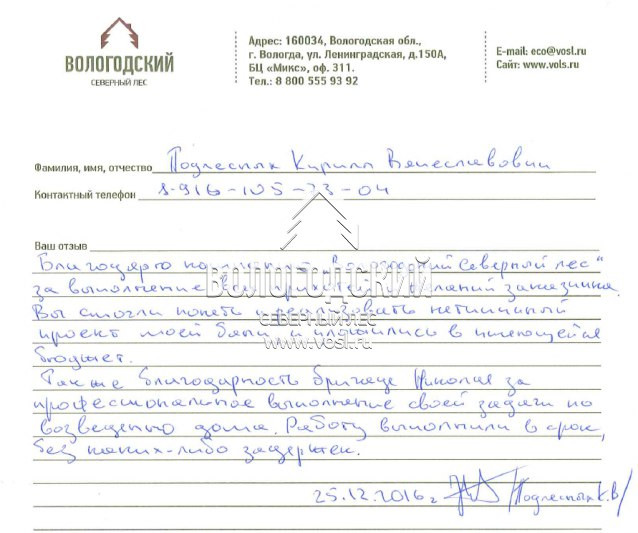 ВОЛОГОДСКИЙ
СЕВЕРНЫЙ ЛЕС
Адрес: 160034, Вологодская обл.,
г. Вологда, ул. Ленинградская, д.150А,
БЦ «Микс», оф. 311.
Тел.: 8 800 555 93 92
E-mail: eco@vosl.ru
Сайт: www.vols.ru
Фамилия, имя, отчество Подлесных Кирилл Вячеславович
Контактный телефон 8-916-105-23-04
Ваш отзыв
Благодарю северный лес"
за выполнение заказчика.
Вы смогли понять и реализовать нетипичный
проект моей бани и в имеющейся
бюджет.
Также благодарность бригаде Николая за
профессиональное выполнение своей задачи по
возведению дома. Работу выполнили в срок,
без каких-либо задержек.
25.12.2016 г. /Подлесных К.В/
ВОЛОГОДСКИЙ
СЕВЕРНЫЙ ЛЕС
www.vosl.ru